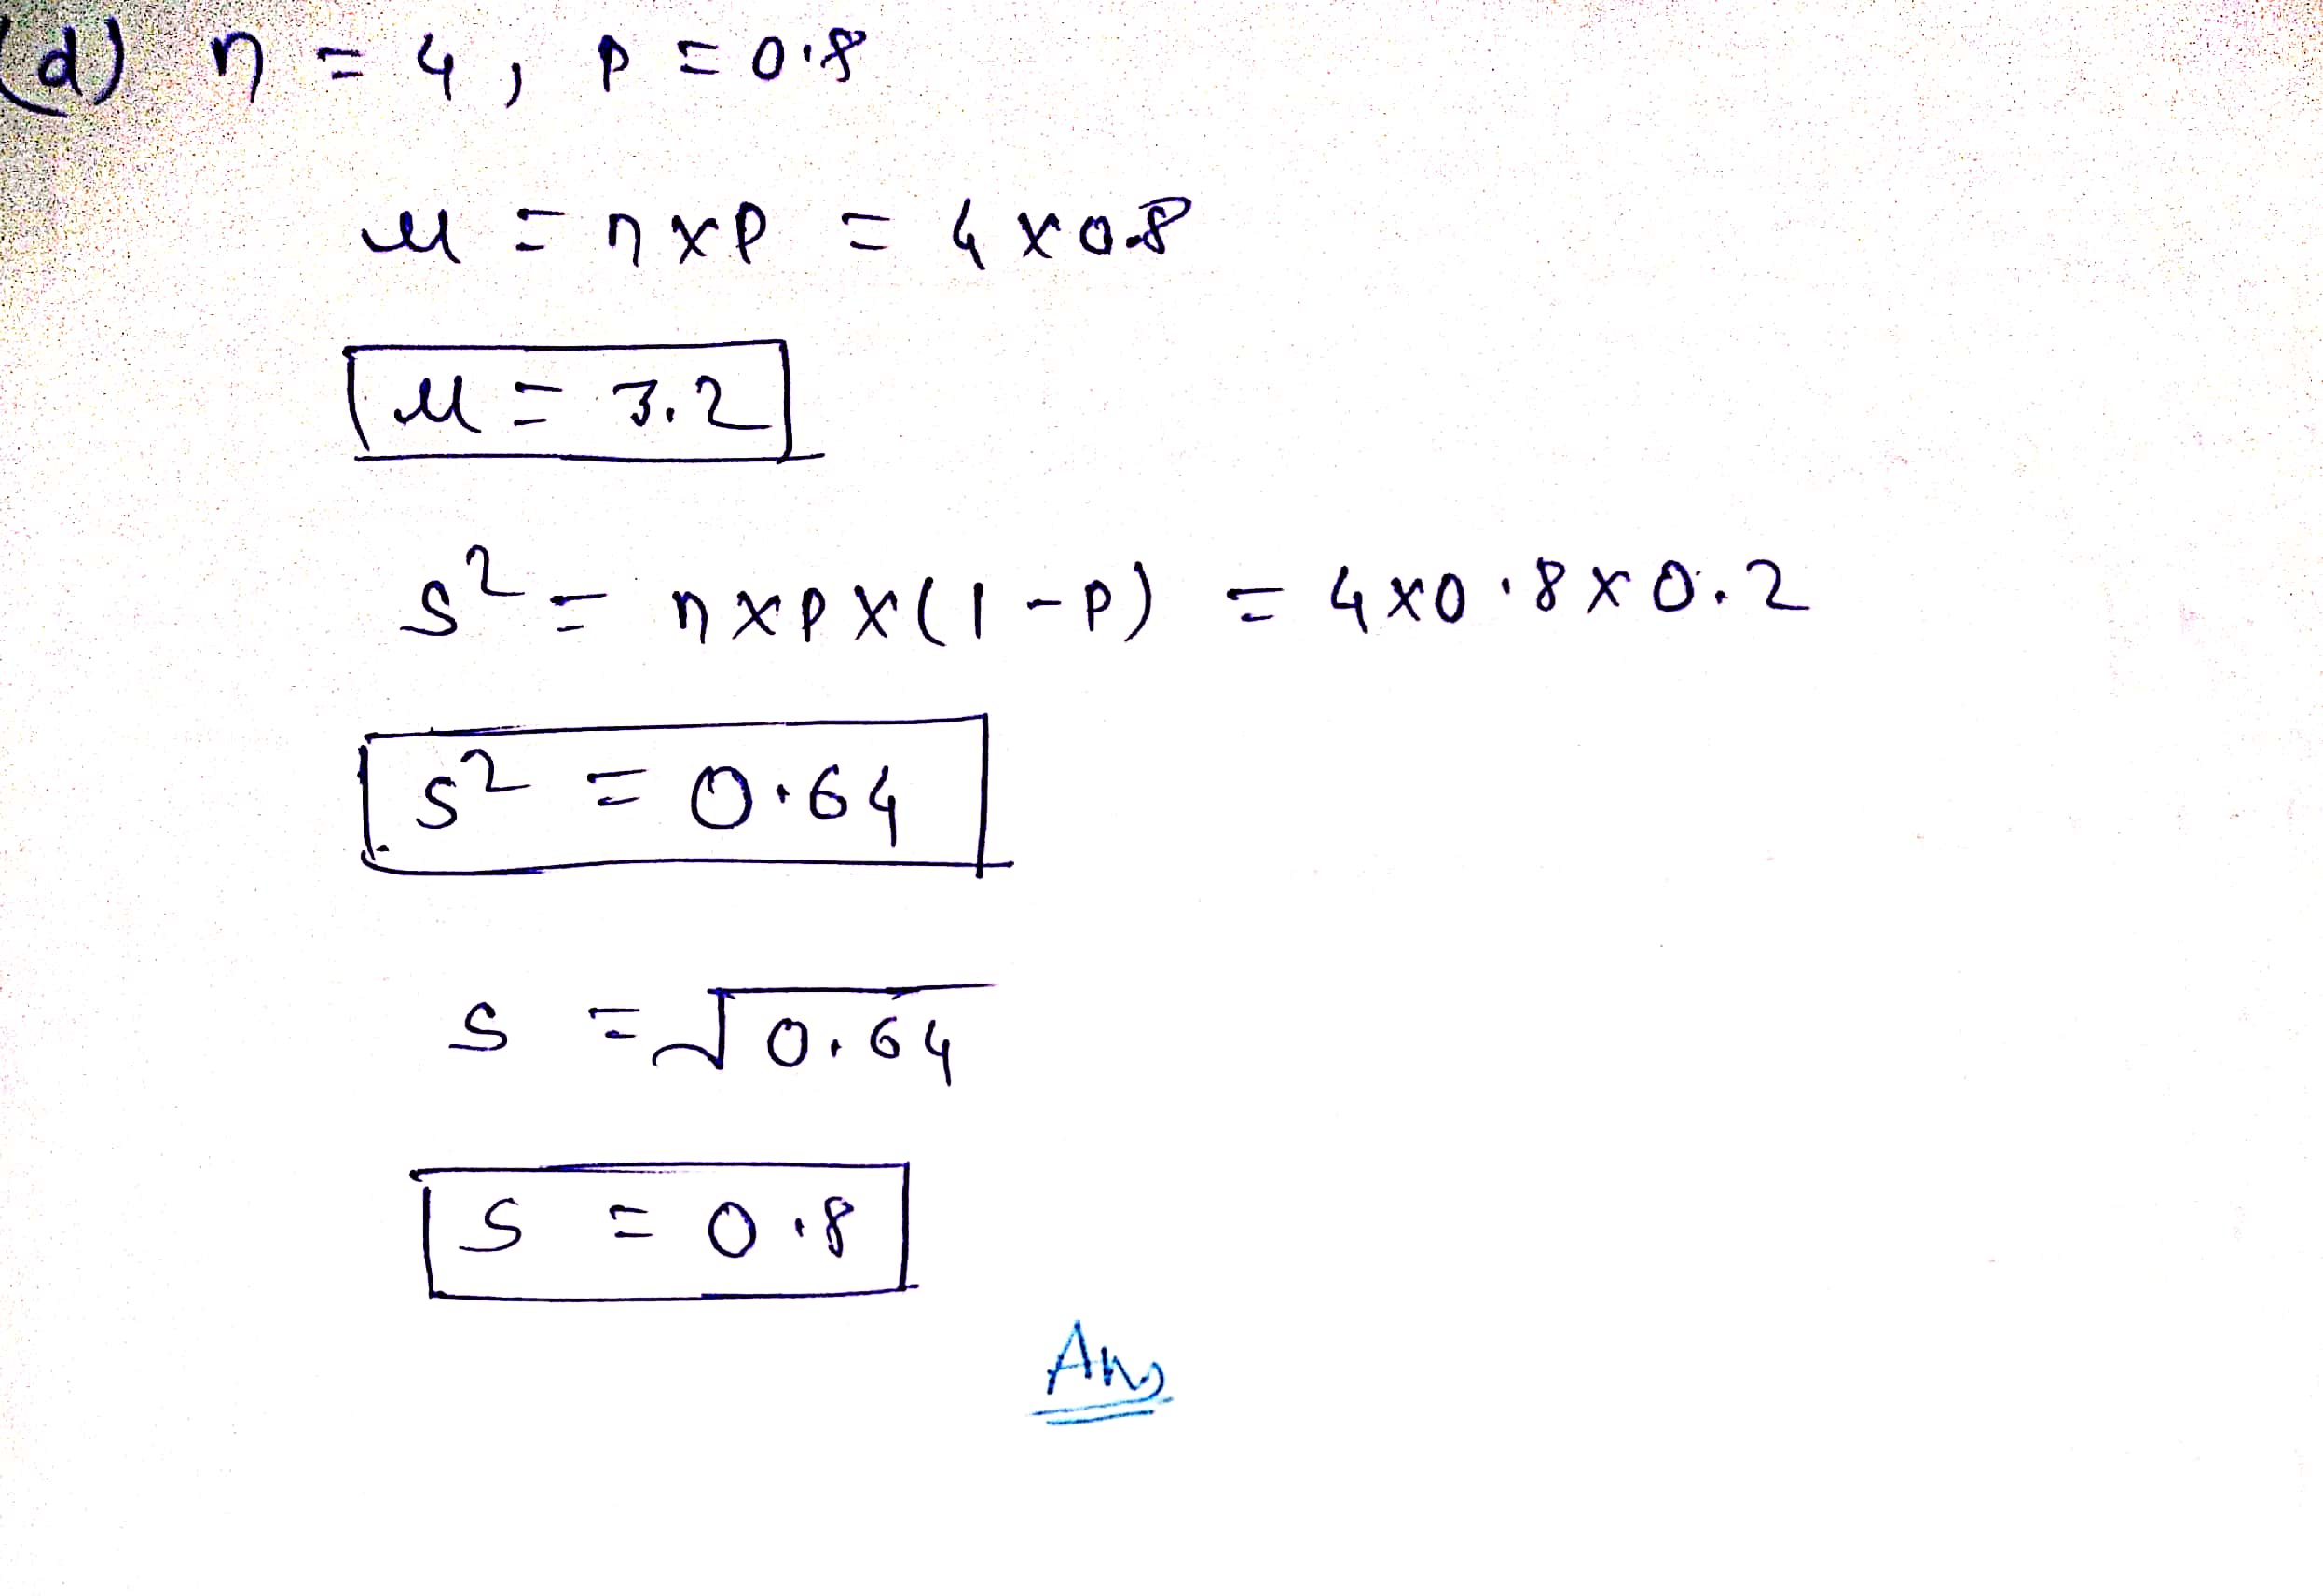 (d) n = 4, p = 0.8
μ = n×p = 4×0.8
μ = 3.2
s² = n×p×(1-p) = 4×0.8×0.2
s² = 0.64
s = √0.64
s = 0.8
Ans